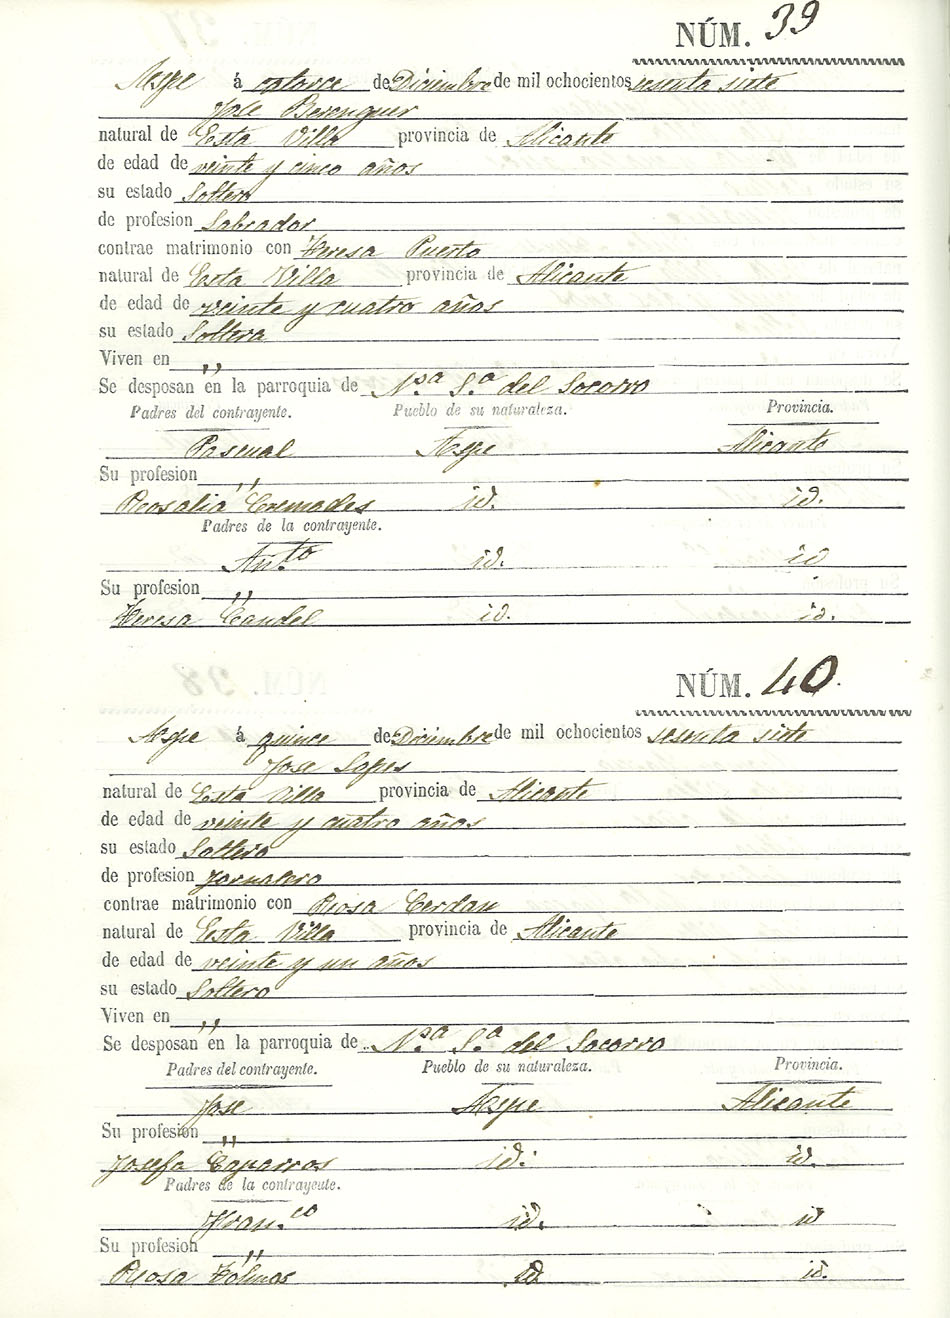 NÚM. 39
Aspe á catorce de Diciembre de mil ochocientos sesenta siete
Jose Berenguer
natural de Esta Villa provincia de Alicante
de edad de veinte y cinco años
su estado Soltero
de profesion Labrador
contrae matrimonio con Teresa Puerto
natural de Esta Villa provincia de Alicante
de edad de veinte y cuatro años
su estado Soltera
Viven en ,,
Se desposan en la parroquia de Nsª Sª del Socorro
Padres del contrayente. Pueblo de su naturaleza. Provincia.
Pascual Aspe Alicante
Su profesion ,,
Rosalia Cremades id. id.
Padres de la contrayente.
Ant.to id. id
Su profesion ,,
Teresa Candel id. id.
NÚM. 40
Aspe á quince de Diciembre de mil ochocientos sesenta siete
Jose Lopes
natural de Esta Villa provincia de Alicante
de edad de veinte y cuatro años
su estado Soltero
de profesion Jornalero
contrae matrimonio con Rosa Cerdan
natural de Esta Villa provincia de Alicante
de edad de veinte y un años
su estado Soltero
Viven en ,,
Se desposan en la parroquia de Nsª Sª del Socorro
Padres del contrayente. Pueblo de su naturaleza. Provincia.
Jose Aspe Alicante
Su profesion ,,
Josefa Caparros id. id.
Padres de la contrayente.
Fran.co id. id
Su profesion ,,
Rosa id. id.